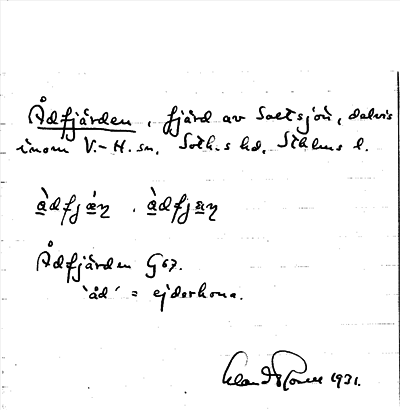 Ådfjärden, fjärd av Saltsjön, delvis
inom V.-H. sn, Soth.s hd, Sthlms l.
àdfjǽn, àdfjan
Ådfjärden G67.
'åd' = ejderhona.
1931.